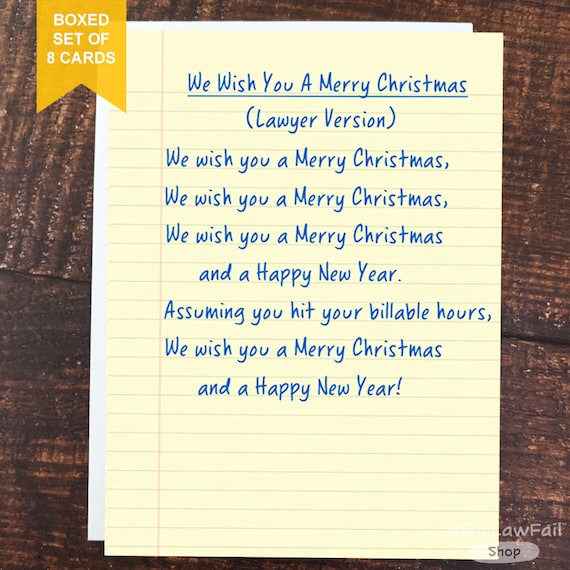 BOXED
SET OF
8 CARDS
We Wish You A Merry Christmas
(Lawyer Version)
We wish you a Merry Christmas,
We wish you a Merry Christmas,
We wish you a Merry Christmas
and a Happy New Year.
Assuming you hit your billable hours,
We wish you a Merry Christmas
and a Happy New Year!
Shop